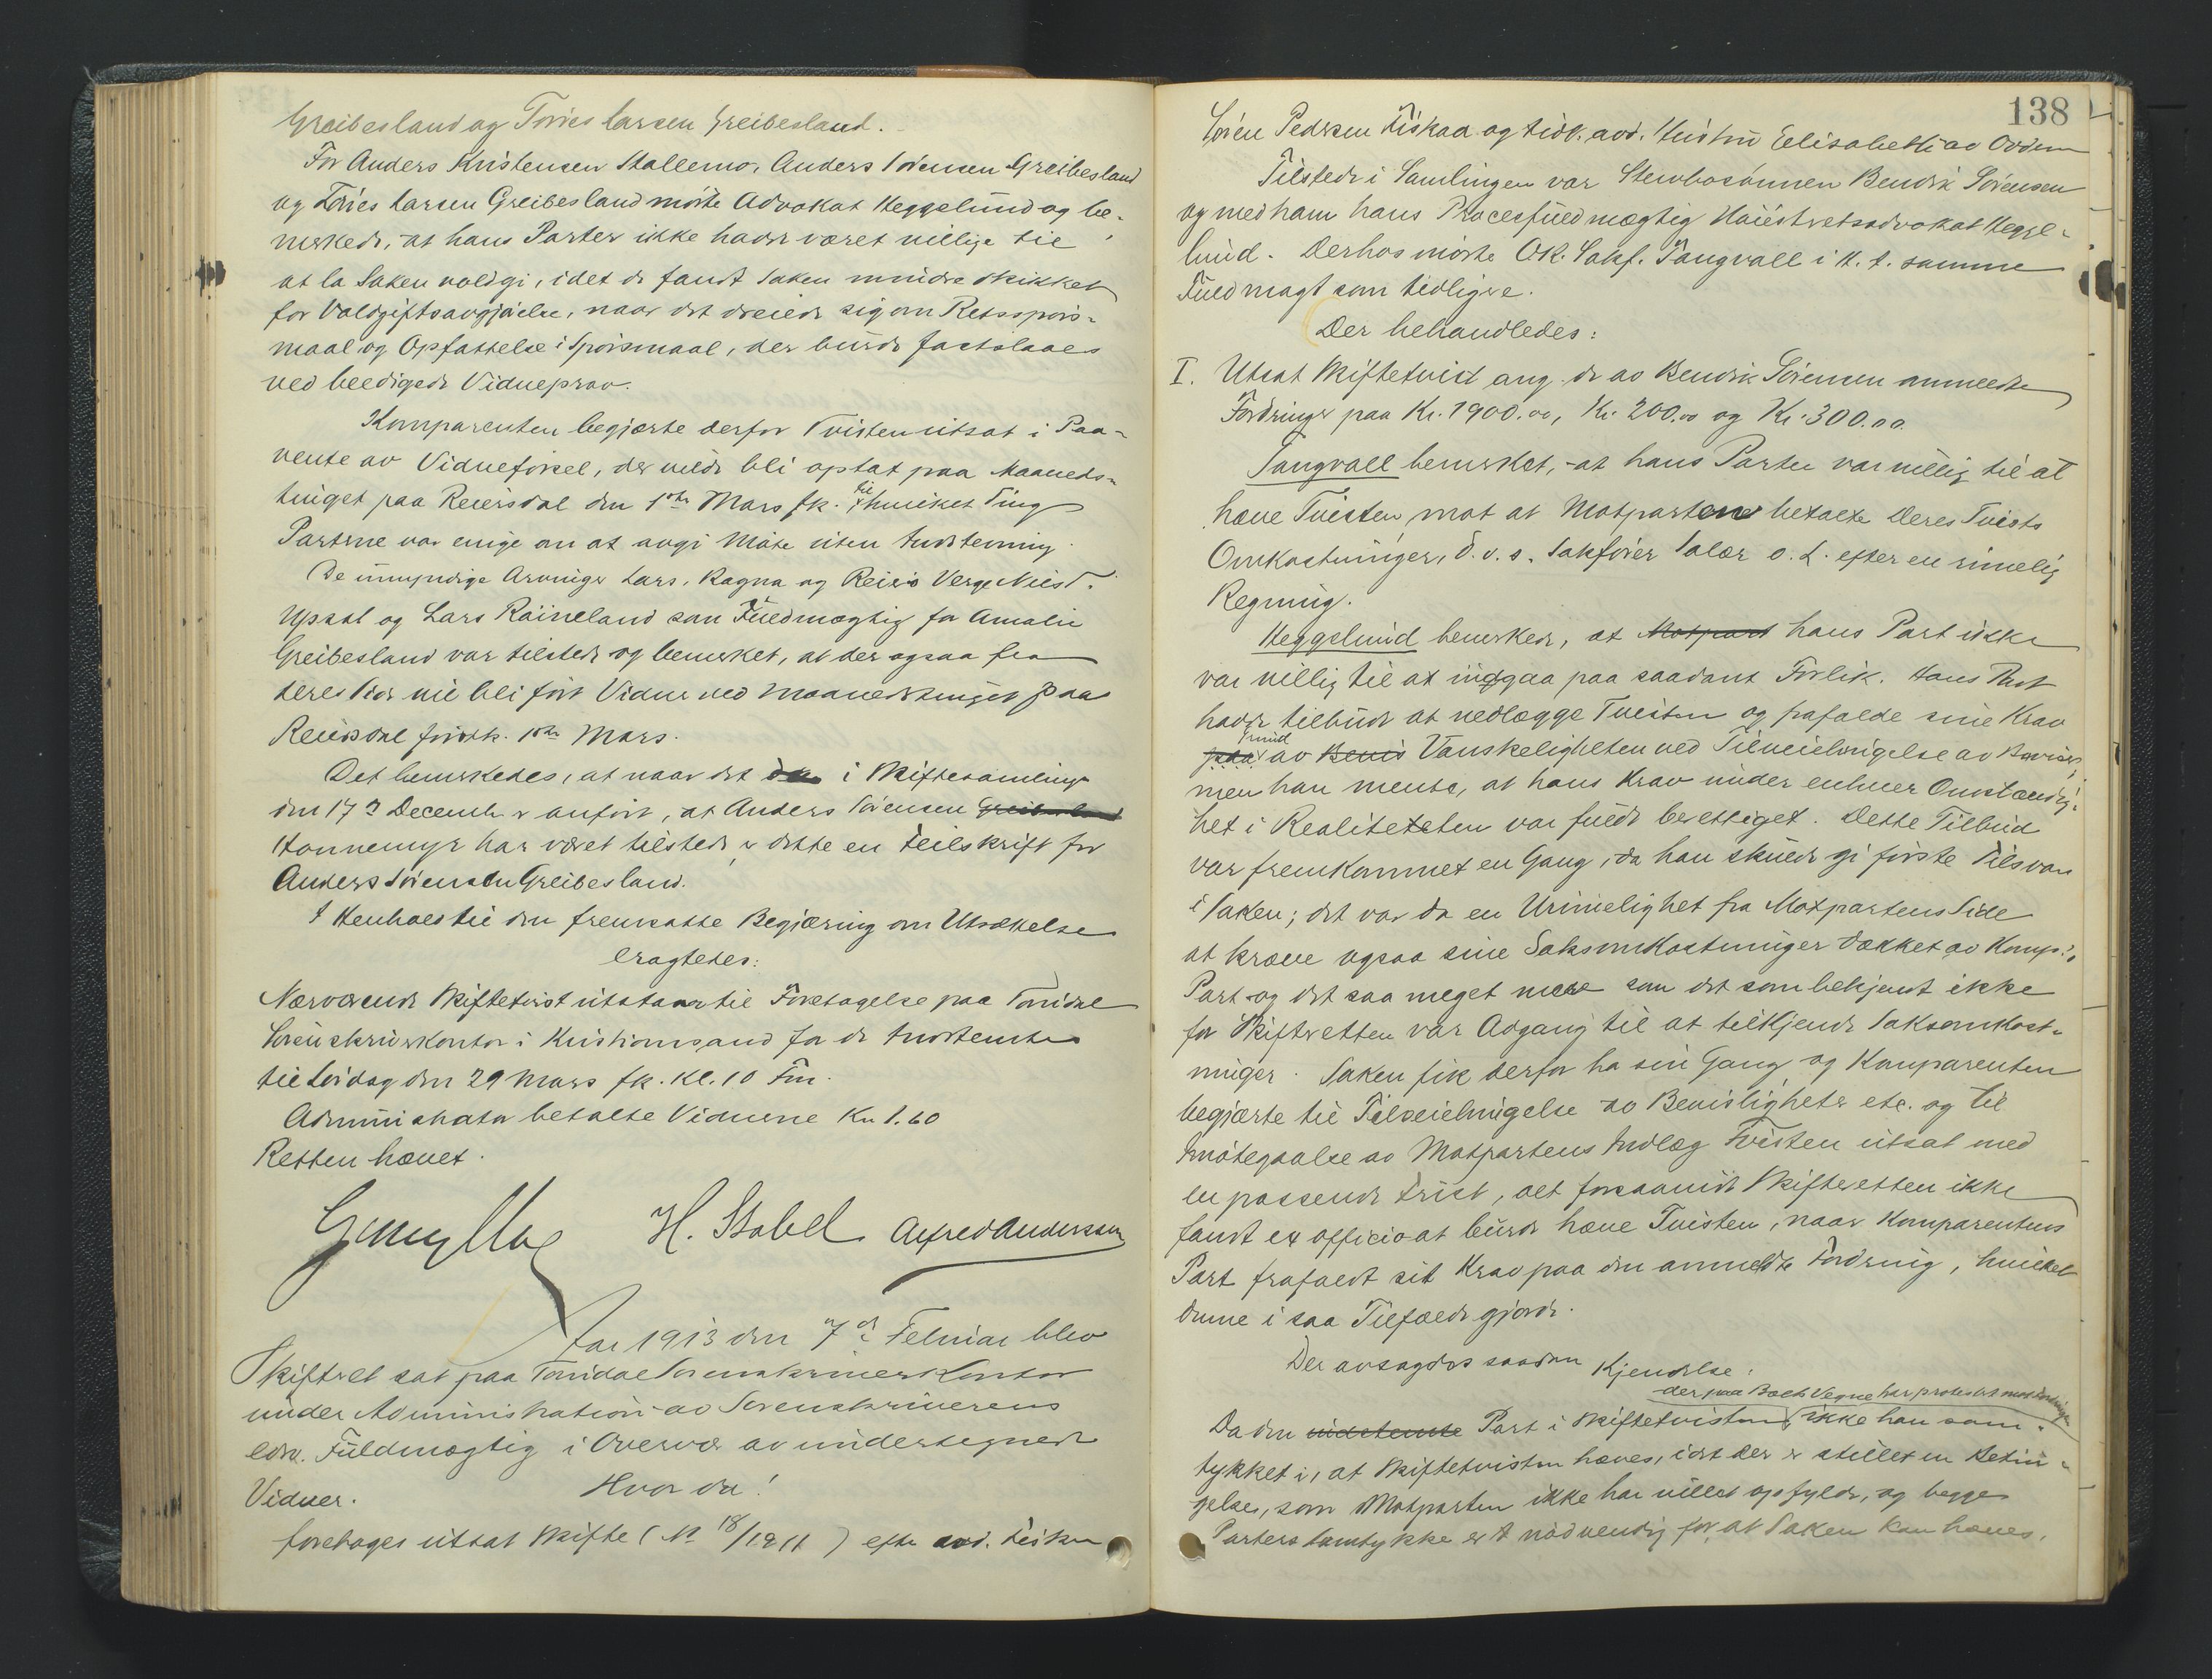 Greibesland og Tories Larsen Greibesland.
For Anders Kristensen Stallemo, Anders Sørensen Greibesland
og Tories Larsen Greibesland mødte Advokat Heggelund og be-
merkede, at hans Parter ikke hadde været villige til
at la Saken voldgi, idet de fandt Saken mindre skikket
for Voldgiftsavgjørelse, naar det dreiede sig om Retsspørs-
maal og Opfattelse i Spørsmaal, der burde fastslaaes
ved beedigede Vidueprov.
Komparenten begjærte derfor Tvisten utsat i Paa-
vente av Vidneførsel, der vilde bli optat paa Maaneds-
tinget paa Reiersdal den 1ste Mars fk. til hvilket Ting
Parterne var enige om at avgi Møte uten Indstevning.
De umyndige Arvinger Lars, Ragna og Reiers Verge Niels T.
Upsal og Lars Røineland som Fuldmægtig for Amalie
Greibesland var tilstede og bemerket, at der ogsaa fra
deres Side vil bli ført Vidner ved Maanedstinget paa
Reiersdal førstk. 1ste Mars.
Det bemerkedes, at naar det i Skiftesamling
den 17de December er anført, at Anders Sørensen Greibesland
Honnemyr har været tilstede er dette en Feilskrift for
Anders Sørensen Greibesland.
I Henhold til den fremsatte Begjæring om Utsættelse
eragtedes:
Nærværende Skiftetvist utstaar til Foretagelse paa Torridal
Sorenskriverkontor i Kristiansand for de Indstevnte
til Lørdag den 29 Mars fk. Kl. 10 Fm.
Administrator betalte Vidnerne Kr. 1.60
Retten hævet.
H. Stabel Alfred Andersen
Aar 1913 den 7de Februar blev
Skifteret sat paa Torridal Sorenskriverkontor
under Administration av Sorenskriverens
edsv. Fuldmægtig i Overvær av undertegnede
Vidner. Hvor da!
foretages utsat Skifte (No 18/1911) efter avd. Fisker
138
Søren Pedersen Fiskaa og tidl. avd. Hustru Elisabeth av Oddernes
Tilstede i Samlingen var Stervbosønnen Bendik Sørensen
og med ham hans Procesfuldmægtig Høiesteretsadvokat Hegge-
lund. Derhos møtte OR. Sakf. Tangvall i H. t. samme
Fuldmagt som tidligere.
Der behandledes:
I. Utsat Skiftetvist ang. de av Bendik Sørensen anmeldte
Fordringer paa Kr. 1900.00, Kr. 200.00 og Kr. 300.00.
Tangvall bemerket, at hans Parter var villig til at
hæve Tvisten, mot at Motparten betalte Deres Tvists
Omkostninger, d.v.s. Sakfører Salær o. L. efter en rimelig
Regning.
Heggelund bemerkede, at Motpart hans Part ikke
var villig til at indgaa paa saadant Forlik. Hans Part
hadde tilbudt at nedlægge Tvisten og frafalde sine Krav
paa Grund av Bevis Vanskeligheten ved Tilveiebringelse av Beviser,
men han mente, at hans Krav under enhver Omstændig-
het i Realiteten var fuldt berettiget. Dette Tilbud
var fremkommet en Gang, da han skulde gi første Tilsvar
i Saken; det var da en Urimelighet fra Motpartens Side
at kræve ogsaa sine Saksomkostninger dækket av Komp.'s
Part og det saa meget mere som det som bekjent ikke
for Skifteretten var Adgang til at tilkjende Saksomkost-
ninger. Saken fik derfor ha sin Gang og Komparenten
begjærte til Tilveiebringelse av Bevisligheter etc. og til
Imøtegaaelse av Motpartens Indlæg Tvisten utsat med
en passende Frist, alt forsaavidt Skifteretten ikke
fandt ex officio at burde hæve Tvisten, naar Komparentens
Part frafaldt sit Krav paa den anmeldte Fordring, hvilket
denne i saa Tilfælde gjorde.
Der avsagdes saadan Kjendelse:
der paa Boets Vegne har protestert mot Fordringen
Da den indstevnte Part i Skiftetvisten ikke har sam-
tykket i, at Skiftetvisten hæves, idet der er stillet en Betin-
gelse, som Motparten ikke har villet opfylde, og begge
Parters Samtykke er nødvendig for, at Saken kan hæves,